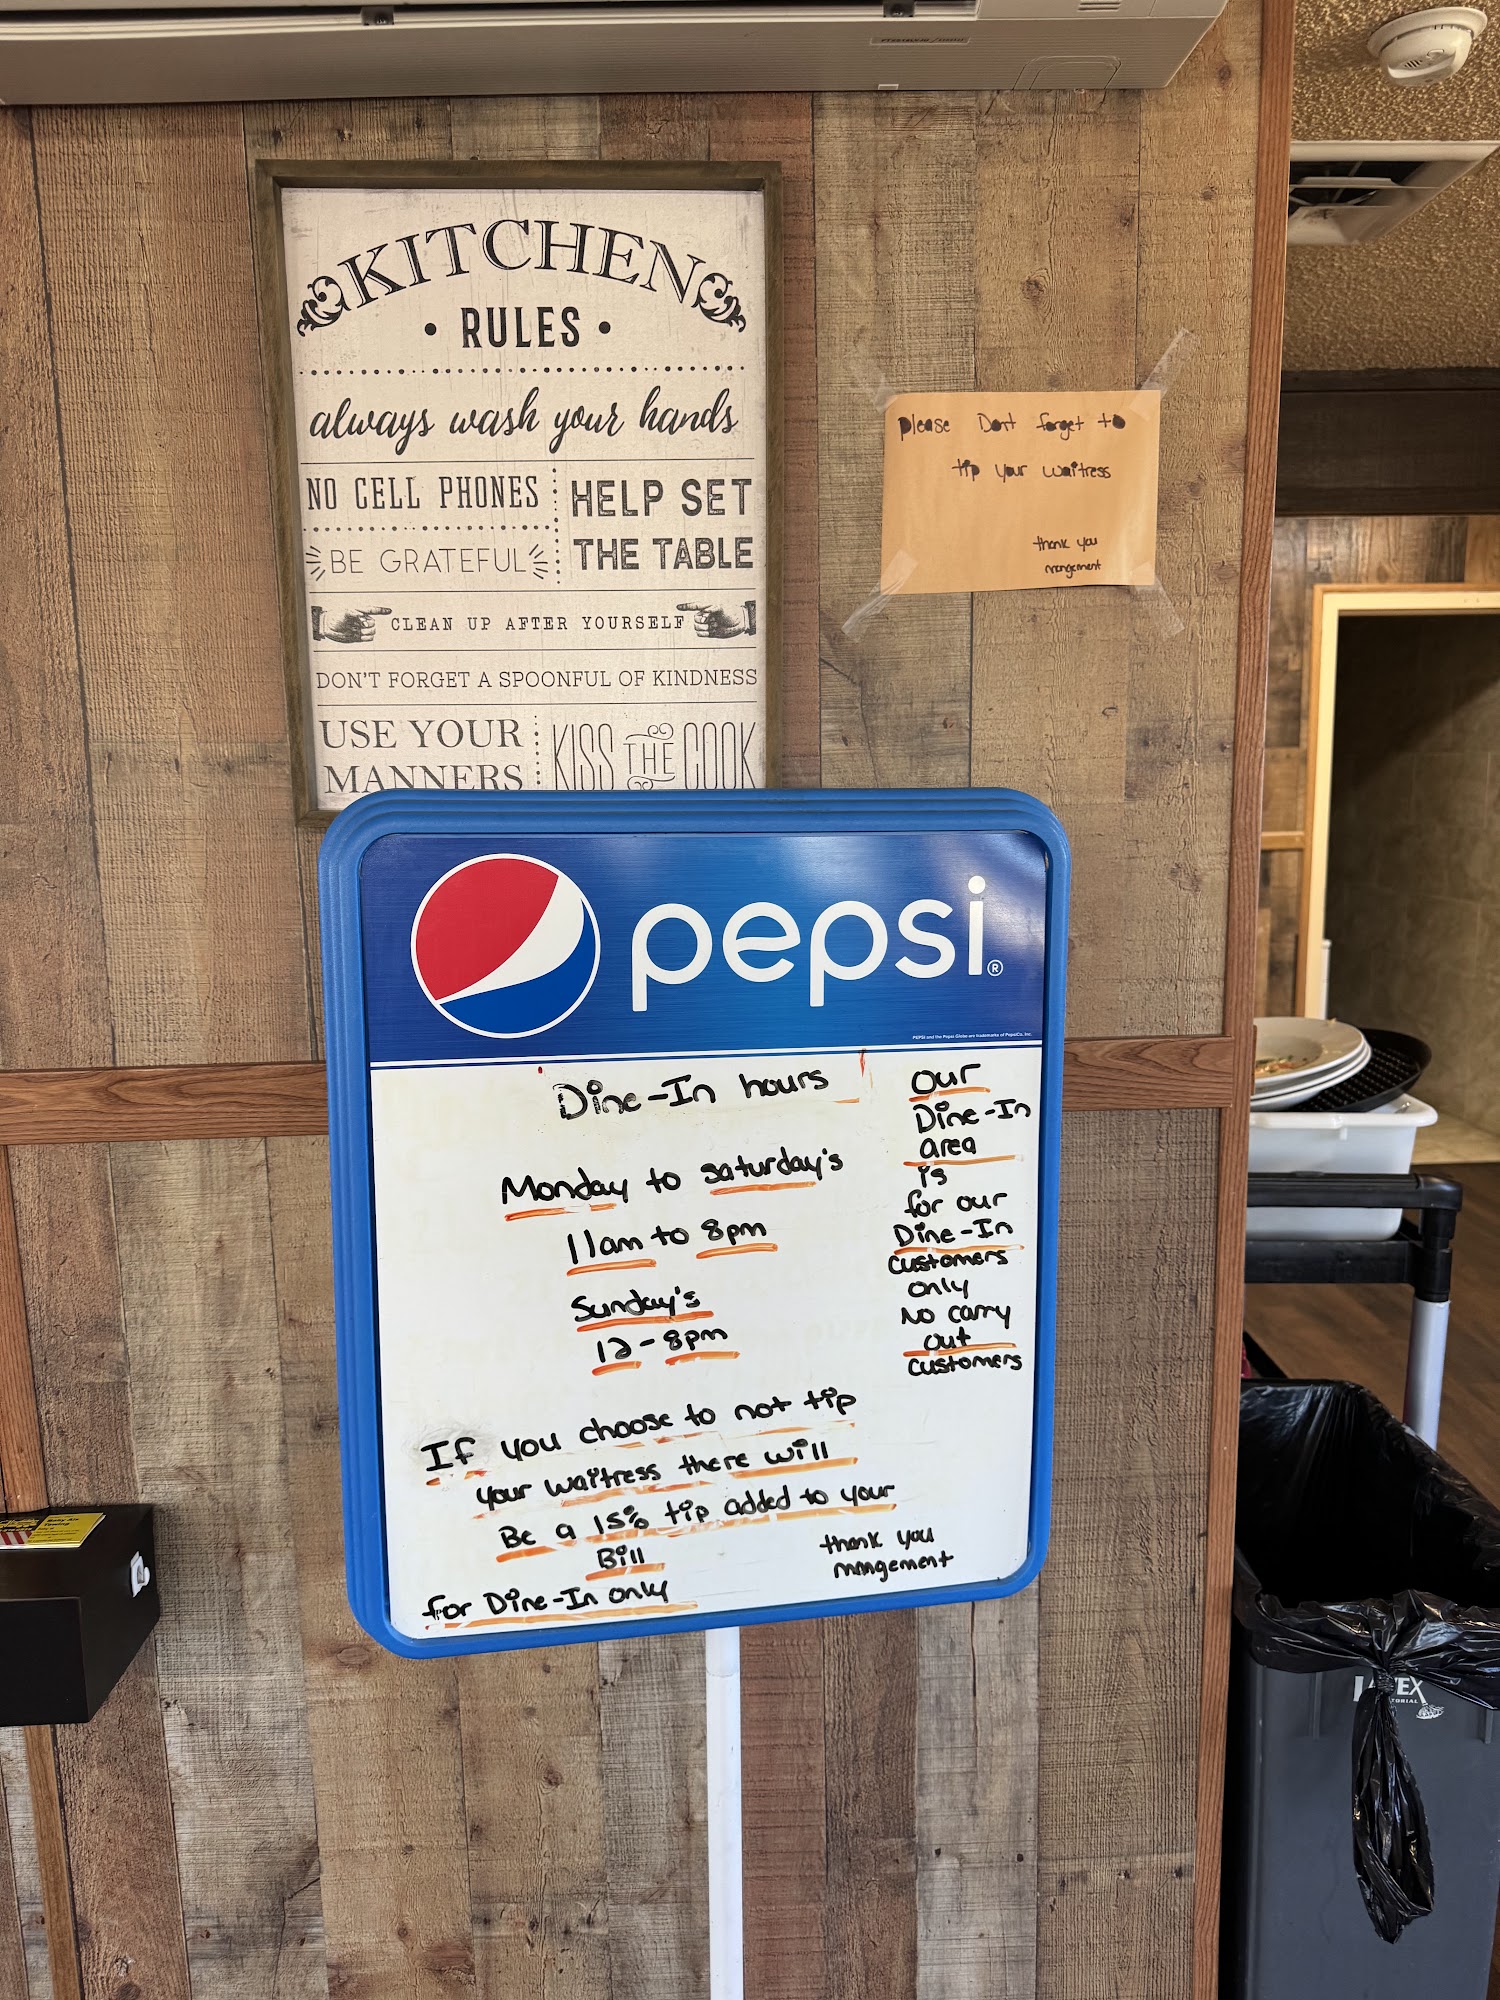 KITCHEN
• RULES •
always wash your hands
NO CELL PHONES
BE GRATEFUL
HELP SET
THE TABLE
CLEAN UP AFTER YOURSELF
DON'T FORGET A SPOONFUL OF KINDNESS
USE YOUR
MANNERS
KISS THE COOK
please Dont forget to
tip your waitress
thank you
mangement
pepsi®
PEPSI and the Pepsi Globe are trademarks of PepsiCo, Inc.
Dine-In hours
Monday to saturday's
11am to 8pm
Sunday's
12-8pm
our
Dine-In
area
is
for our
Dine-In
customers
only
No carry
out
customers
If you choose to not tip
your waitress there will
Be a 15% tip added to your
Bill
for Dine-In only
thank you
mangement